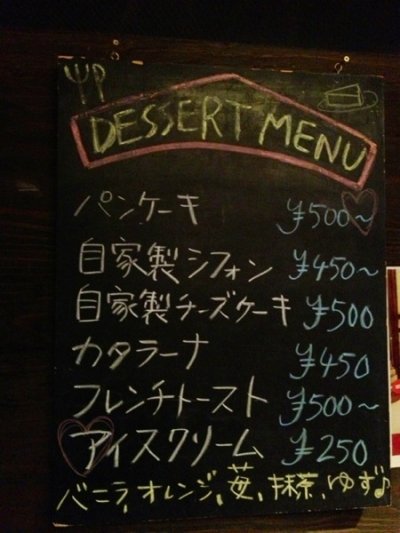 DESSERT MENU
パンケーキ ¥500～
自家製シフォン ¥450～
自家製チーズケーキ ¥500
カタラーナ ¥450
フレンチトースト ¥500～
アイスクリーム ¥250
バニラ、オレンジ、苺、抹茶、ゆず♪